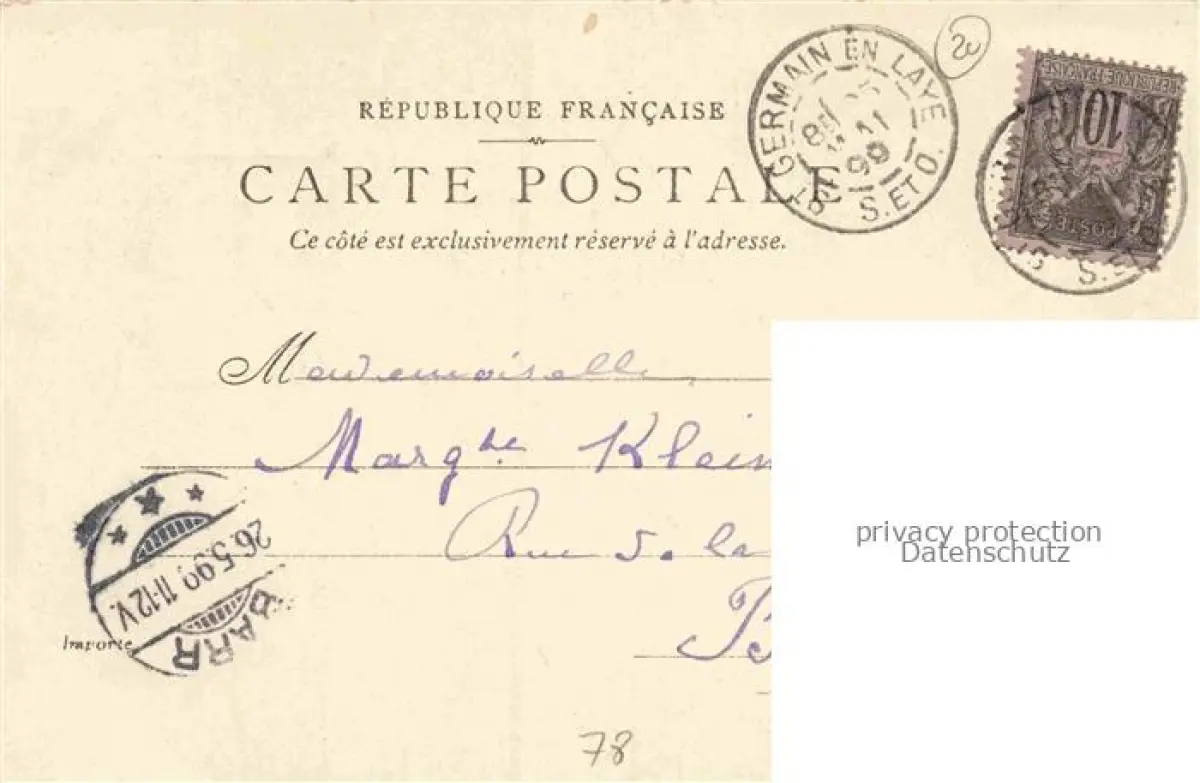 20
ST GERMAIN EN LAYE
99
S. ET O.
RÉPUBLIQUE FRANÇAISE
CARTE POSTALE
Ce côté est exclusivement réservé à l'adresse.
RÉPUBLIQUE FRANÇAISE
10
POSTES
Mademoiselle
Margte Klein
Rue de la
privacy protection
Datenschutz
26.5.99. 11-12V.
BARR
Importe
78